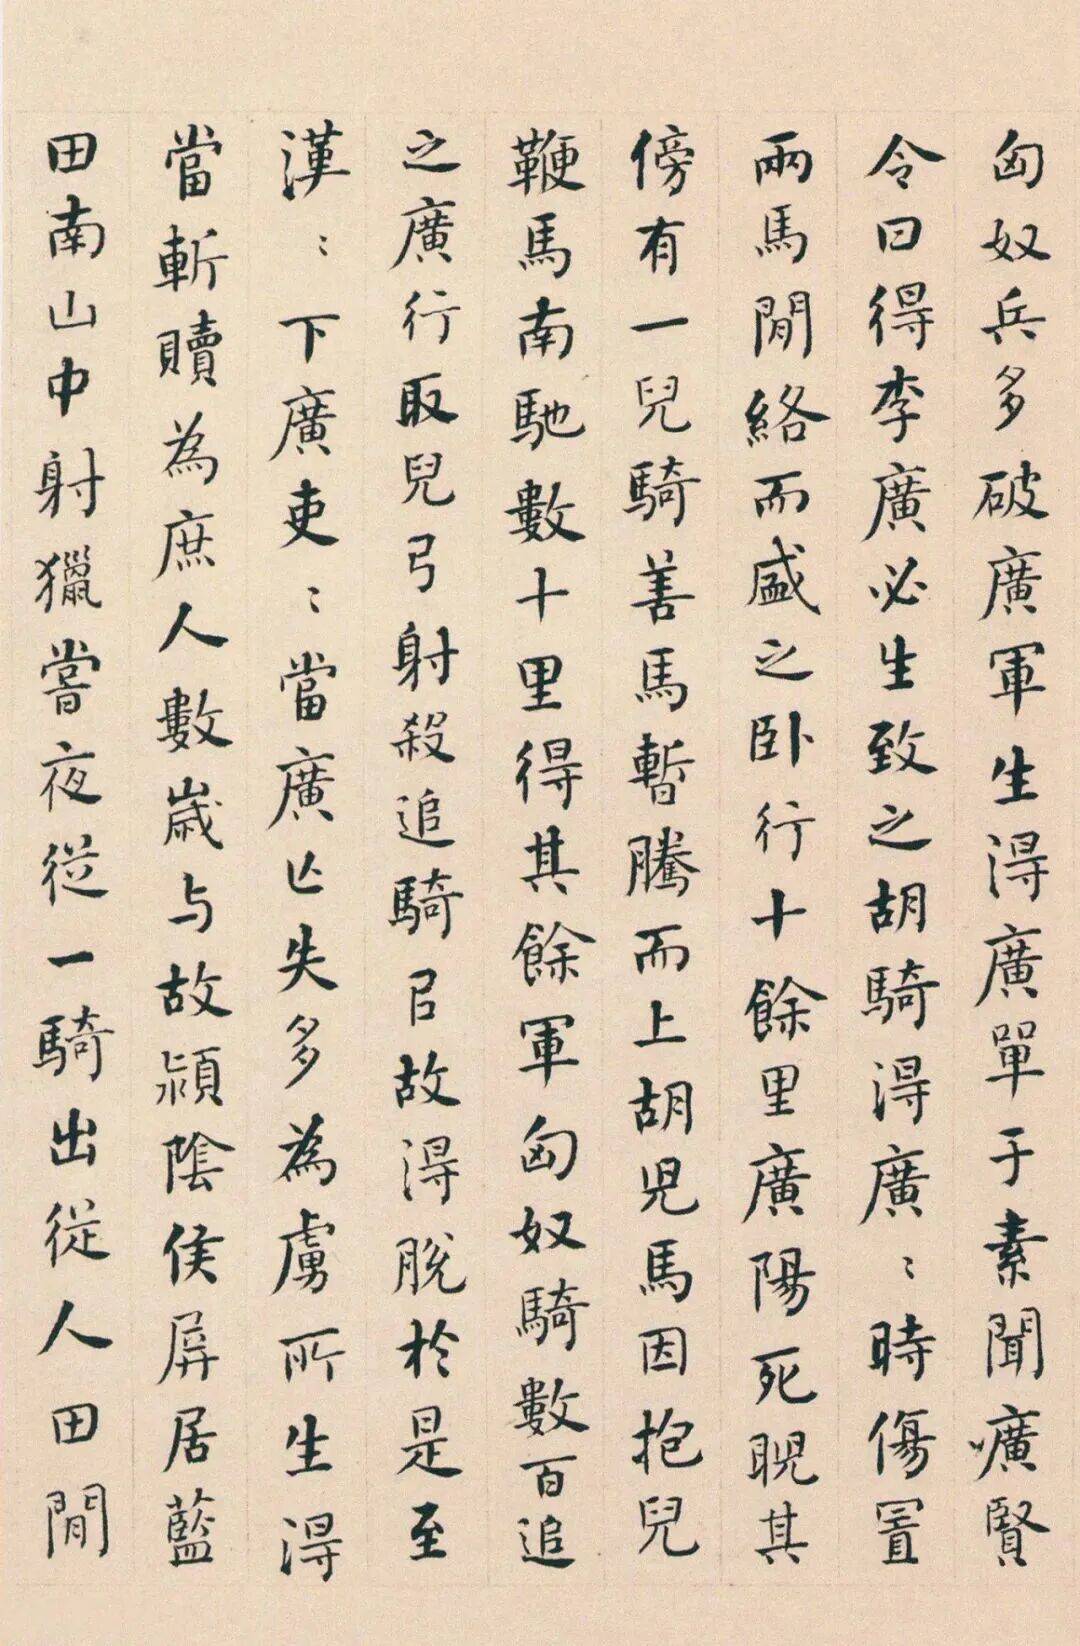 匈奴兵多破廣軍生得廣單于素聞廣賢
令曰得李廣必生致之胡騎得廣〻時傷置
兩馬間絡而盛之卧行十餘里廣陽死睨其
傍有一兒騎善馬暫騰而上胡兒馬因抱兒
鞭馬南馳數十里得其餘軍匈奴騎數百追
之廣行取兒弓射殺追騎㠯故得脫於是至
漢〻下廣吏〻當廣亡失多為虜所生得
當斬贖為庶人數歲与故潁陰侯屏居藍
田南山中射獵嘗夜從一騎出從人田間